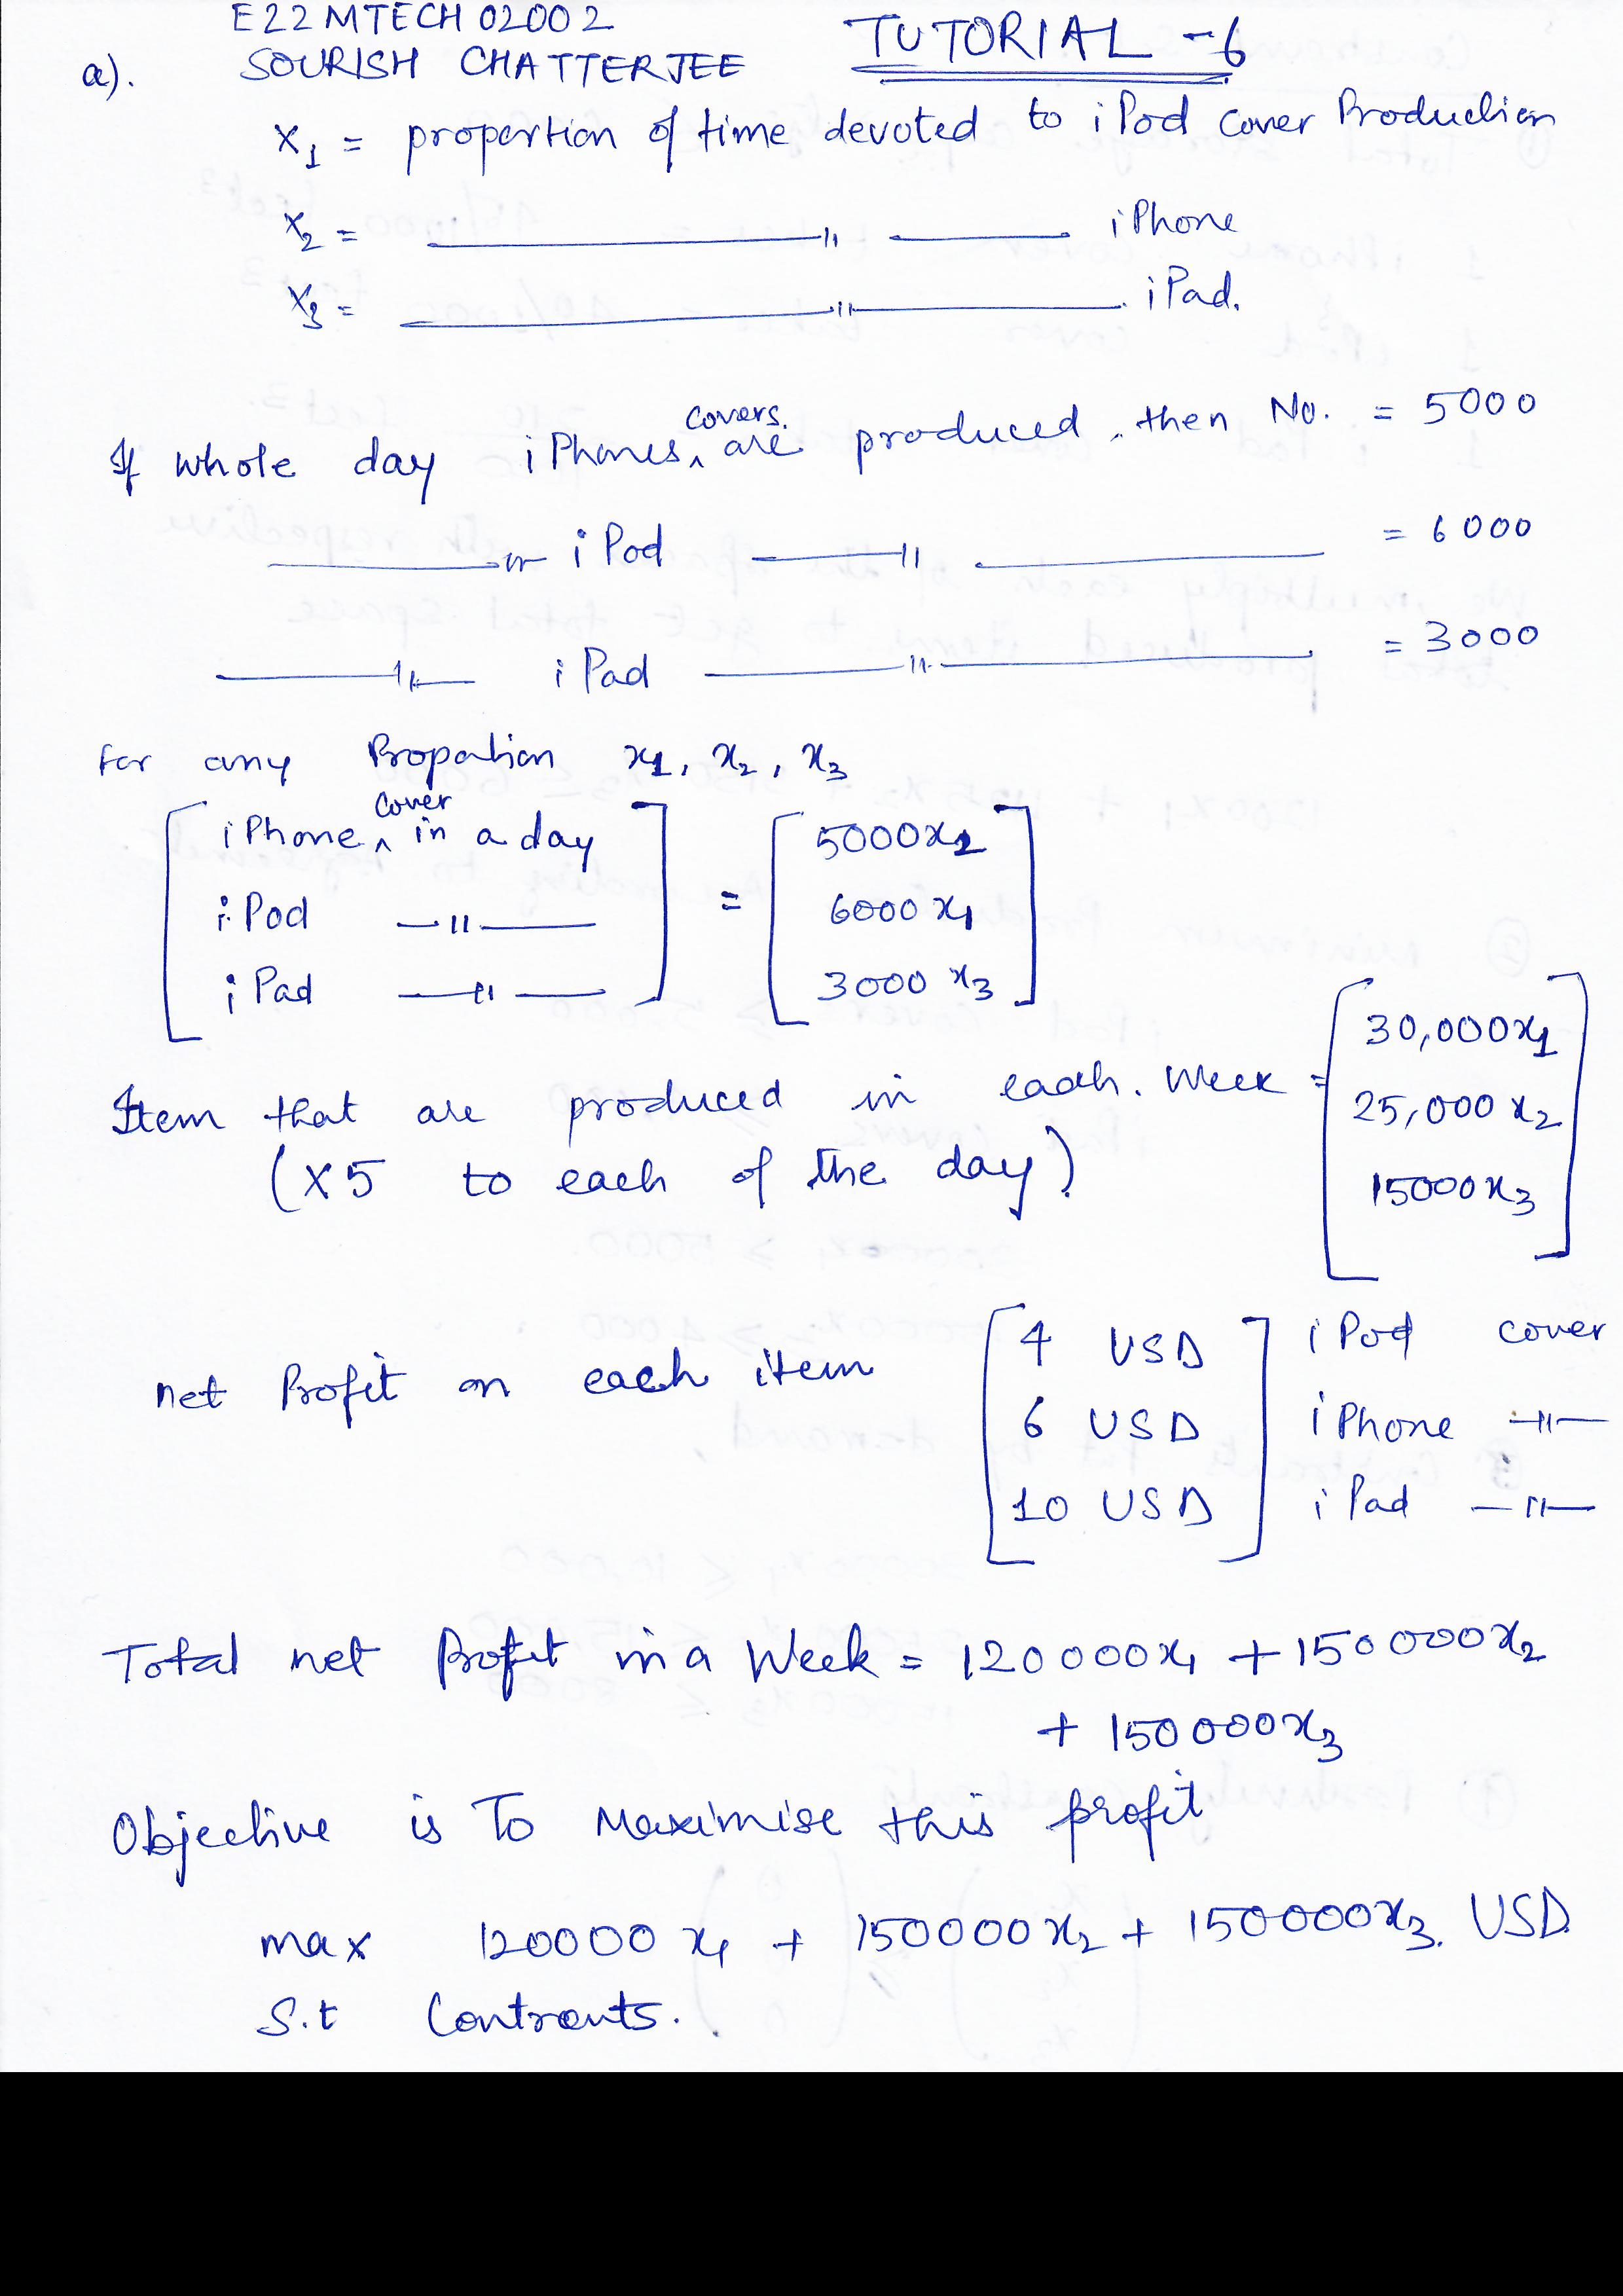 E22MTECH02002
a). SOURISH CHATTERJEE TUTORIAL -6
x1 = proportion of time devoted to iPod cover Production
x2 = —————"———— iPhone
x3 = —————"———— iPad.
If whole day iPhones covers. are produced, then No. = 5000
————"— iPod ———"———— = 6000
————"— iPad ———"———— = 3000
For any Propotion x1, x2, x3
[ iPhone cover in a day ] = [ 5000x2 ]
iPod —"—— 6000x1
iPad —"—— 3000x3
Item that are produced in each. Week = [ 30,000x1
(X5 to each of the day) 25,000x2
15000x3 ]
net Profit on each item [ 4 USD ] iPod cover
6 USD iPhone —"—
10 USD iPad —"—
Total net Profit in a Week = 120000x1 + 150000x2
+ 150000x3
Objective is To Maximise this profit
max 120000x1 + 150000x2 + 150000x3. USD
S.t Contraints.